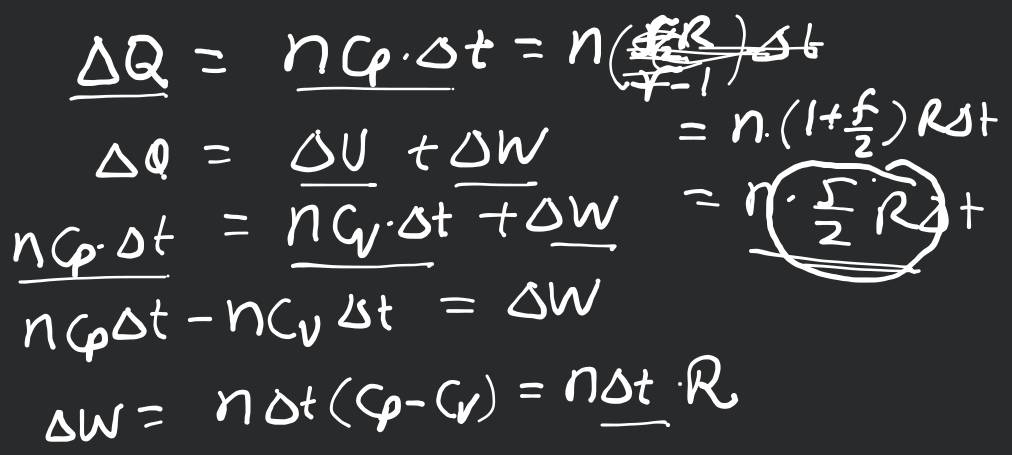 ΔQ = nCp·Δt = n(
= n·(1+f/2)RΔt
ΔQ = ΔU + ΔW
= n·5/2 RΔt
nCp·Δt = nCv·Δt + ΔW
nCpΔt - nCvΔt = ΔW
ΔW = nΔt(Cp-Cv) = nΔt·R